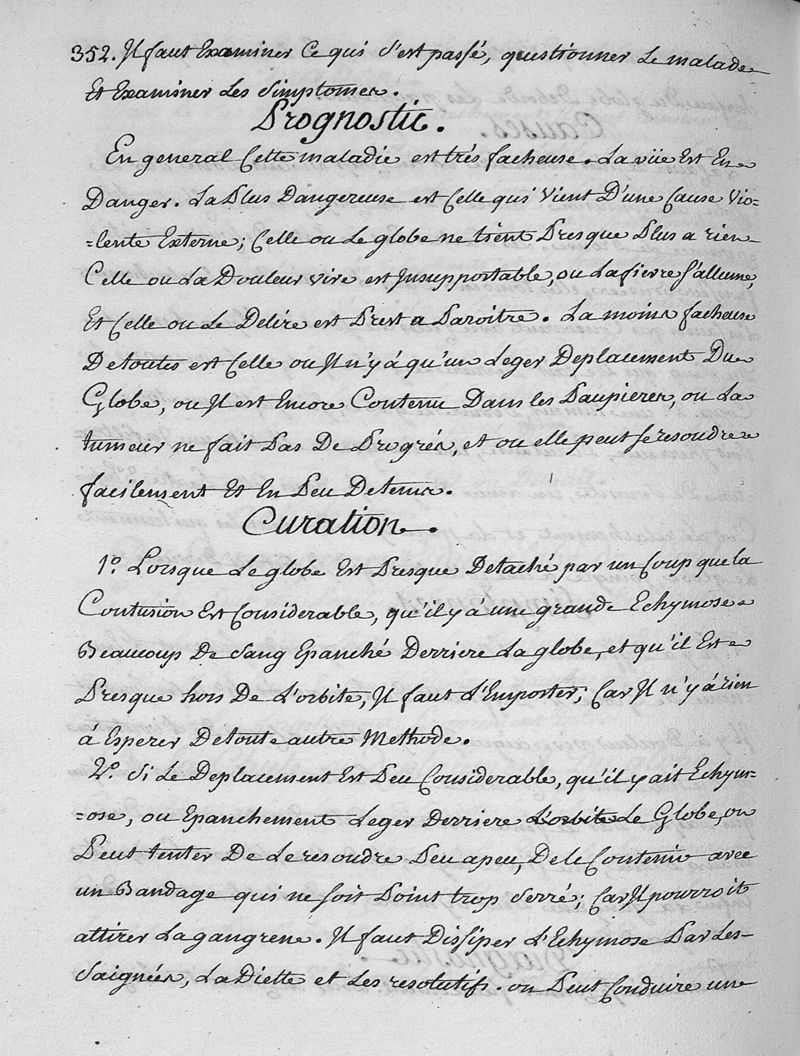 352. Il faut Examiner Ce qui s'est passé, questionner Le malade
Et Examiner Les Simptomes.
Prognostic.
En general Cette maladie est trés facheuse. La vüe Est En
Danger. La Plus Dangereuse est Celle qui Vient D'une Cause Vio=
=lente Externe; Celle ou Le globe ne tient Presque Plus a rien
Celle ou La Douleur vive est Insupportable, ou La fievre s'allume,
Et Celle ou Le Delire est Prest a Paroitre. La moins facheuse
De toutes est Celle ou Il n'y á qu'un Leger Deplacement Du
Globe, ou Il est Encore Contenu Dans les Paupieres, ou La
tumeur ne fait Pas De Progrés, et ou elle peut se resoudre
facilement Et En Peu De tems.
Curation.
1.° Lorsque Le globe Est Presque Detaché par un Coup que la
Contusion Est Considerable, qu'il y á une grande Echymose
Beaucoup De Sang Epanché Derriere La globe, et qu'il Est
Presque hors De L'orbite, Il faut L'Emporter; Car Il n'y á rien
á Esperer De toute autre Methode.
2.° Si Le Deplacement Est Peu Considerable, qu'il y ait Echym=
=ose, ou Epanchement Leger Derriere L'orbite Le Globe, on
Peut tenter De Le resoudre Peu a peu, De le Contenir avec
un Bandage qui ne soit Point trop Serré; Car Il pourroit
attirer La gangrene. Il faut Dissiper L'Echymose Par Les
Saignées, La Diette et Les resolutifs. on Peut Conduire une